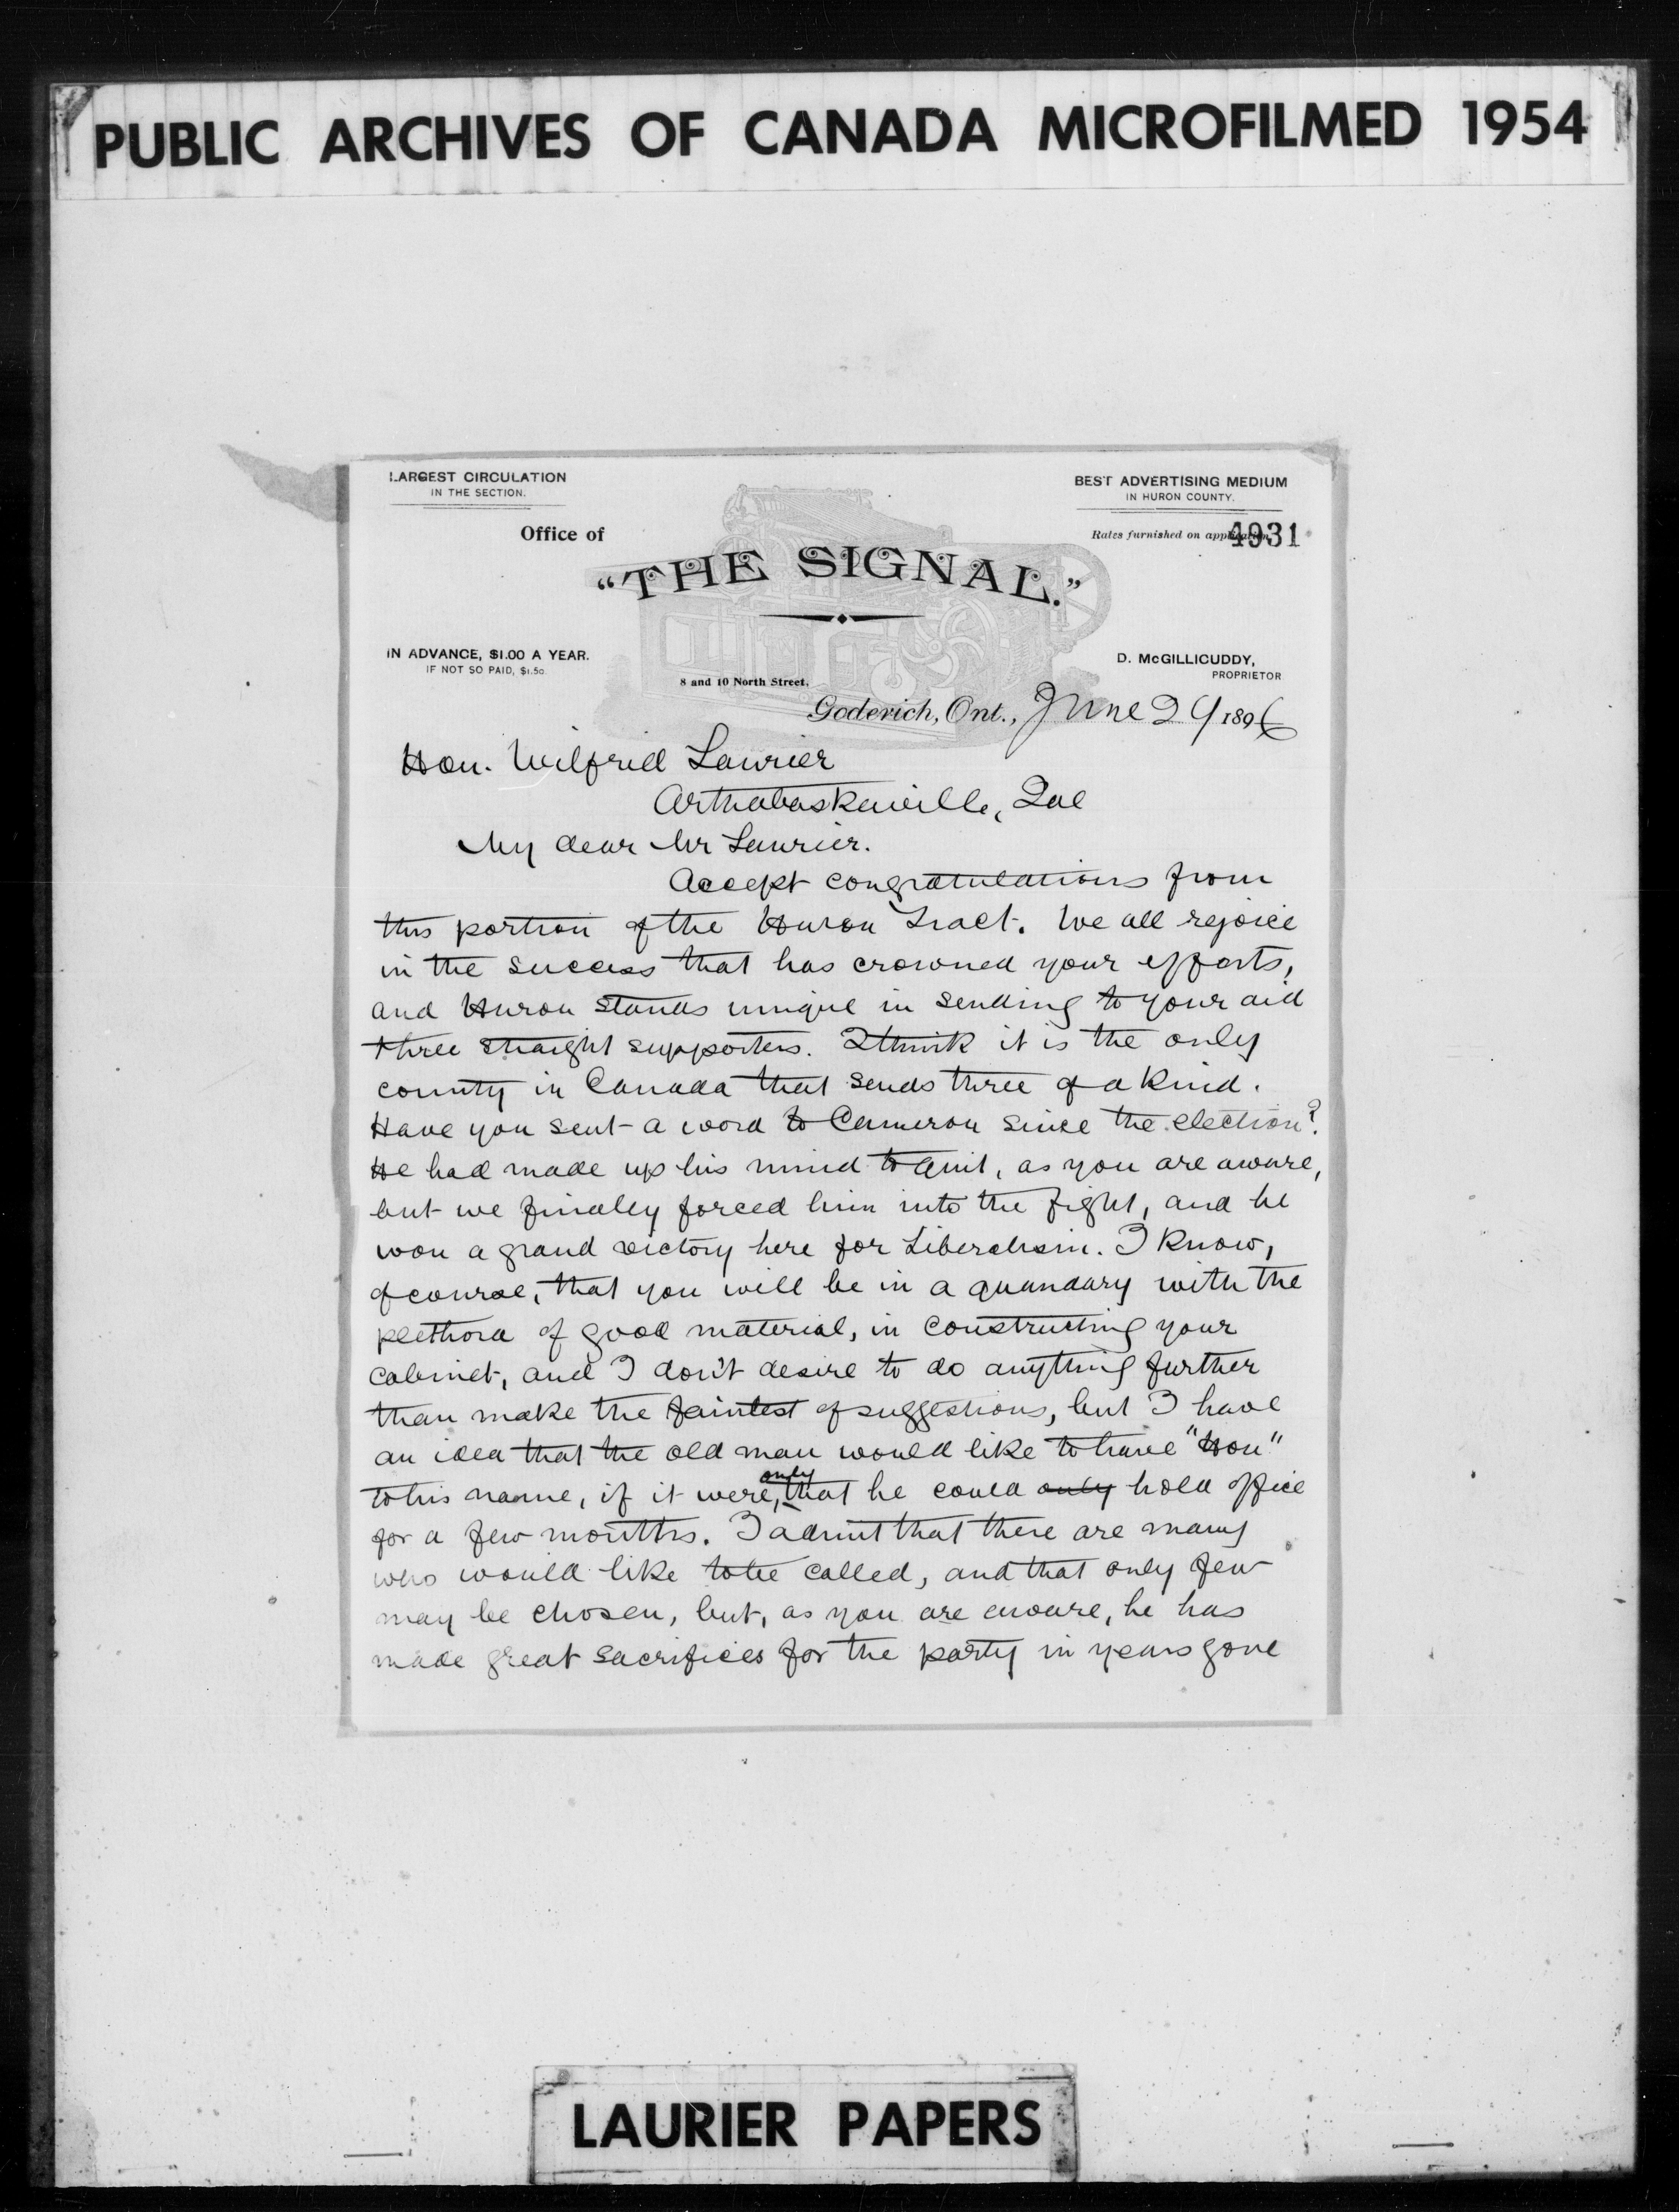 PUBLIC ARCHIVES OF CANADA MICROFILMED 1954
LARGEST CIRCULATION
IN THE SECTION.
BEST ADVERTISING MEDIUM
IN HURON COUNTY.
Office of
Rates furnished on application
4931
"THE SIGNAL."
IN ADVANCE, $1.00 A YEAR.
IF NOT SO PAID, $1.50
D. McGILLICUDDY,
PROPRIETOR
8 and 10 North Street.
Goderich, Ont., June 29 1896
Hon. Wilfrid Laurier
Arthabaskaville, Que
My dear Mr Laurier.
Accept congratulations from
this portion of the Huron Tract. We all rejoice
in the success that has crowned your efforts,
and Huron stands unique in sending to your aid
three straight supporters. I think it is the only
county in Canada that sends three of a kind.
Have you sent a word to Cameron since the election?
He had made up his mind to quit, as you are aware,
but we finally forced him into the fight, and he
won a grand victory here for Liberalism. I know,
of course, that you will be in a quandary with the
plethora of good material, in constructing your
cabinet, and I don't desire to do anything further
than make the faintest of suggestions, but I have
an idea that the old man would like to have "Hon"
to his name, if it were, only that he could only hold office
for a few months. I admit that there are many
who would like to be called, and that only few
may be chosen, but, as you are aware, he has
made great sacrifices for the party in years gone
LAURIER PAPERS